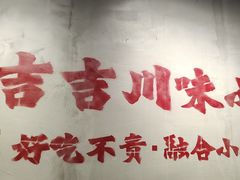 吉吉川味
好吃不贵·融合小